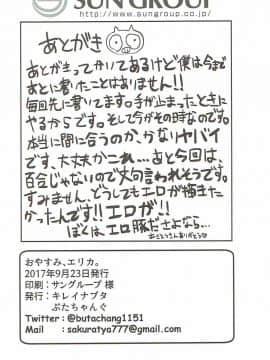 SUN GROUP
https://www.sungroup.co.jp/
あとがき
あとがきってかいてあるけど僕は今まで
あとに書いたことはありません!!
毎回先に書いてます。手が止まったときに
やるからです。そして今がその時なのです。
本当に間に合うのか、かなりヤバイ
です、大丈夫かこれ…あと今回は、
百合じゃないので文句言われそうです。
すみません、どうしてもエロが描きた
かったんです!!エロが!!
ぼくは、エロ豚ださよなら…
おやすみ、エリカ。
2017年9月23日発行
印刷:サングループ 様
発行:キレイナブタ
ぶたちゃんぐ
Twitter:@butachang1151
Mail :sakuratya777@gmail.com